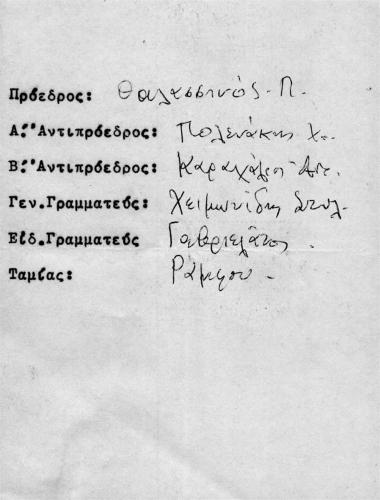 Πρόεδρος: Θαλασσινός. Π.
Α.'' Αντιπρόεδρος: Πολενάκης Χ.
Β.'' Αντιπρόεδρος:
Γεν.Γραμματεύς: Χειμωνίδης
Ειδ.Γραμματεύς Γαβριελάτος.
Ταμίας: Ράμφου.